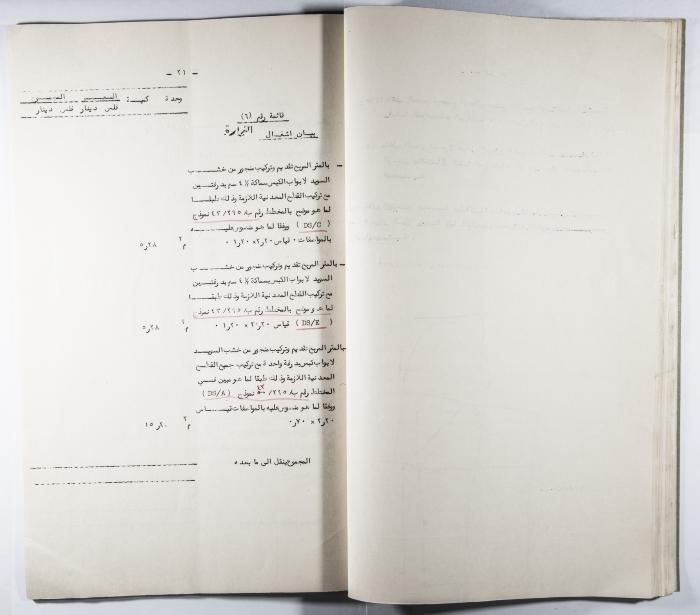 - ٢١ -
وحدة كمية السعر
فلس دينار فلس دينار
قائمة رقم (٦)
بيان اشغال النجارة
- بالمتر المربع تقديم وتركيب منجور من خشب
السويد لابواب الكبس بسماكة ½ ٤ سم بدرفتين
مع تركيب القطع المعدنية اللازمة وذلك طبقا
لما هو موضح بالمخطط رقم ب٨ ٤٣/٢١٥ نموذج
(DS/C) ووفقا لما هو منصوص عليه
بالمواصفات ٠ قياس ٢٠ر٢ × ٢٠ر١ ٠ م٢ ٢٨ر٥
- بالمتر المربع تقديم وتركيب منجور من خشب
السويد لابواب الكبس بسماكة ½ ٤ سم بدرفتين
مع تركيب القطع المعدنية اللازمة وذلك طبقا
لما هو موضح بالمخطط رقم ب٨ ٤٣/٢١٥ نموذج
(DS/E) قياس ٢٠ر٢ × ٢٠ر١ ٠ م٢ ٢٨ر٥
- بالمتر المربع تقديم وتركيب منجور من خشب السويد
لابواب كبس بدرفة واحدة مع تركيب جميع القطع
المعدنية اللازمة وذلك طبقا لما هو مبين في
المخطط رقم ب٨ ٢١٥/ ٤٣ نموذج (DS/A)
ووفقا لما هو منصوص عليه بالمواصفات قياس
٢٠ر٢ × ٧٠ر٠ م٢ ١٥
المجموع ينقل الى ما بعده